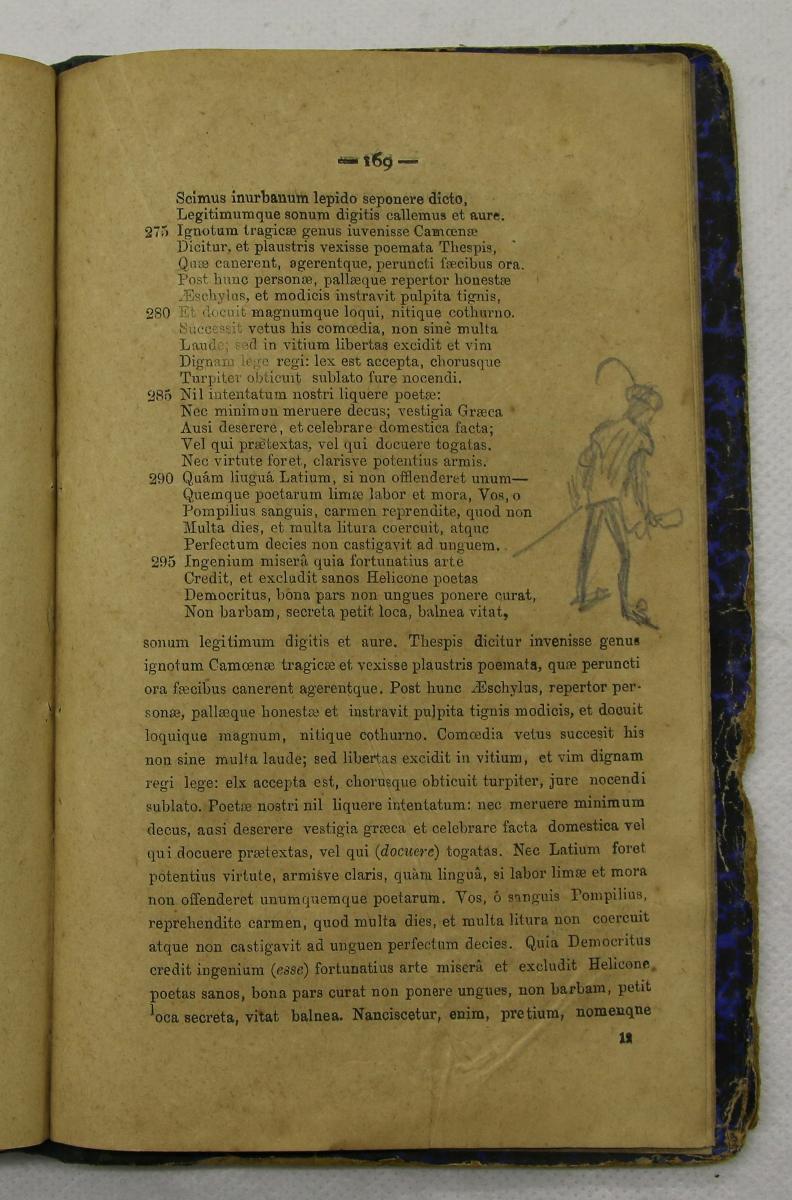 — 169 —
Scimus inurbanum lepido seponere dicto,
Legitimumque sonum digitis callemus et aure.
275 Ignotum tragicæ genus iuvenisse Camœnæ
Dicitur, et plaustris vexisse poemata Thespis,
Quæ canerent, agerentque, peruncti fæcibus ora.
Post hunc personæ, pallæque repertor honestæ
Æschylus, et modicis instravit pulpita tignis,
280 Et docuit magnumque loqui, nitique cothurno.
Successit vetus his comœdia, non sinè multa
Laude; sed in vitium libertas excidit et vim
Dignam lege regi: lex est accepta, chorusque
Turpiter obticuit sublato fure nocendi.
285 Nil intentatum nostri liquere poetæ:
Nec minimun meruere decus; vestigia Græca
Ausi deserere, et celebrare domestica facta;
Vel qui prætextas, vel qui docuere togatas.
Nec virtute foret, clarisve potentius armis.
290 Quâm linguâ Latium, si non offlenderet unum—
Quemque poetarum limæ labor et mora, Vos, o
Pompilius sanguis, carmen reprendite, quod non
Multa dies, et multa litura coercuit, atque
Perfectum decies non castigavit ad unguem.
295 Ingenium miserâ quia fortunatius arte
Credit, et excludit sanos Helicone poetas
Democritus, bona pars non ungues ponere curat,
Non barbam, secreta petit loca, balnea vitat,
sonum legitimum digitis et aure. Thespis dicitur invenisse genus
ignotum Camœnæ tragicæ et vexisse plaustris poemata, quæ peruncti
ora fæcibus canerent agerentque. Post hunc Æschylus, repertor per-
sonæ, pallæque honestæ et instravit pulpita tignis modicis, et docuit
loquique magnum, nitique cothurno. Comœdia vetus succesit his
non sine multa laude; sed libertas excidit in vitium, et vim dignam
regi lege: elx accepta est, chorusque obticuit turpiter, jure nocendi
sublato. Poetæ nostri nil liquere intentatum: nec meruere minimum
decus, ausi deserere vestigia græca et celebrare facta domestica vel
qui docuere prætextas, vel qui (docuere) togatas. Nec Latium foret
potentius virtute, armisve claris, quàm linguâ, si labor limæ et mora
non offenderet unumquemque poetarum. Vos, ó sanguis Pompilius,
reprehendite carmen, quod multa dies, et multa litura non coercuit
atque non castigavit ad unguen perfectum decies. Quia Democritus
credit ingenium (esse) fortunatius arte miserâ et excludit Helicone
poetas sanos, bona pars curat non ponere ungues, non barbam, petit
loca secreta, vitat balnea. Nanciscetur, enim, pretium, nomenqne
12